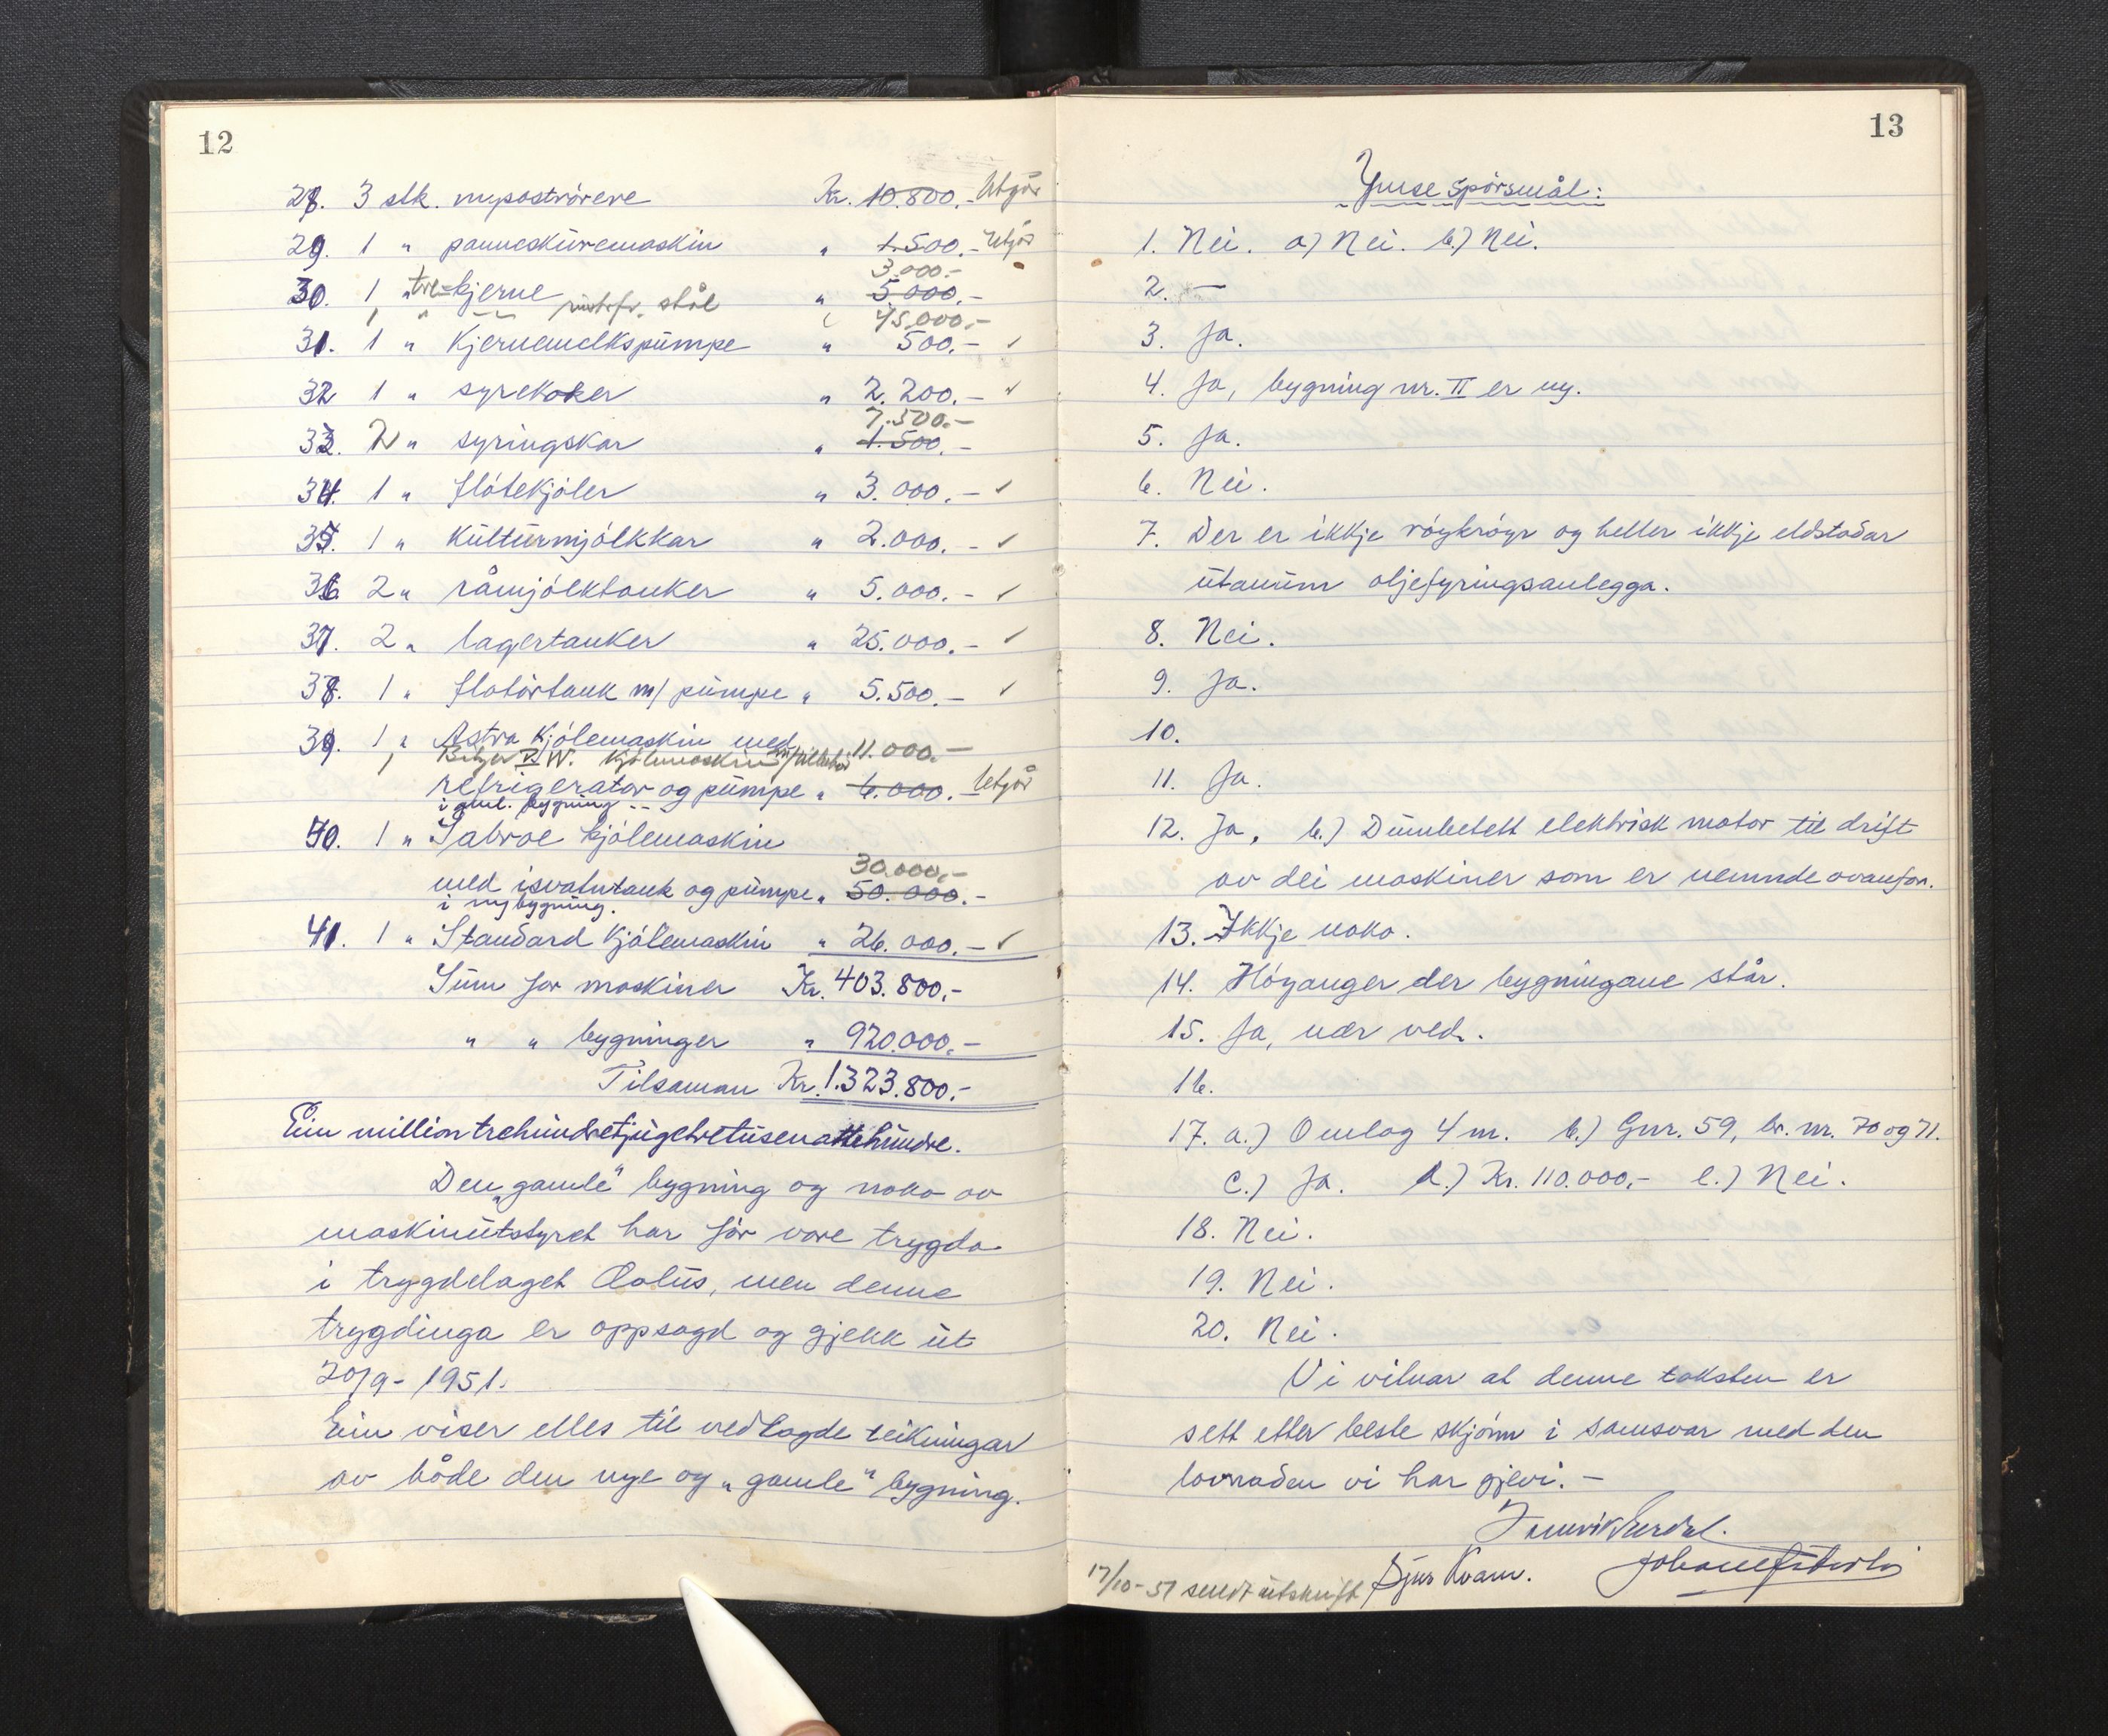 12
28. 3 stk. mysostrørere Kr. 10.800.- Utgår
29. 1 " panneskuremaskin " 1.500.- Utgår
3.000.-
30. 1 " tre-kjerne " 5.000.-
1 " -"- rustfr. stål " 45.000.-
31. 1 " Kjernemelkspumpe " 500.- ✓
32. 1 " syrekoker " 2.200.- ✓
7.500.-
33. 2 " syringskar " 1.500.-
34. 1 " fløtekjøler " 3.000.- ✓
35. 1 " Kulturmjølkkar " 2.000.- ✓
36. 2 " råmjølktanker " 5.000.- ✓
37. 2 " lagertanker " 25.000.- ✓
38. 1 " flotørtank m/ pumpe " 5.500.- ✓
39. 1 " Astra Kjølemaskin med
1 V/W. Kjølmaskin m/ 11.000.-
refrigerator og pumpe " 6.000.- Utgår
i gml. bygning --
40. 1 " Sabroe kjølemaskin
30.000.-
med isvatntank og pumpe " 50.000.-
i nybygning.
41. 1 " Standard Kjølemaskin " 26.000.- ✓
Sum for maskiner Kr. 403.800,-
" " bygninger " 920.000,-
Tilsaman Kr. 1.323.800.-
Ein million trehundretjugetretusenåttehundre.
Den "gamle" bygning og noko av
maskinutstyret har før vore trygda
i trygdelaget Æolus, men denne
trygdinga er oppsagd og gjekk ut
20/9-1951.
Ein viser elles til vedlagde teikningar
av både den nye og "gamle" bygning.
13
Ymse spørsmål:
1. Nei. a) Nei. b.) Nei.
2. —
3. Ja.
4. Ja, bygning nr. II er ny.
5. Ja.
6. Nei.
7. Der er ikkje røykrøyr og heller ikkje eldstadar
utanum oljefyringsanlegga.
8. Nei.
9. Ja.
10.
11. Ja.
12. Ja. b.) Dumbetett elektrisk motor til drift
av dei maskiner som er nemnde ovanfor.
13. Ikkje noko.
14. Høyanger der bygningane står.
15. Ja, nær ved.
16.
17. a.) Omlag 4 m. b.) Gnr. 59, br. nr. 70 og 71.
c.) Ja. d.) Kr. 110.000,- e.) Nei.
18. Nei.
19. Nei.
20. Nei.
Vi vitnar at denne taksten er
sett etter beste skjønn i samsvar med den
lovnaden vi har gjevi. —
17/10-51 sendt utskrift Kvam.